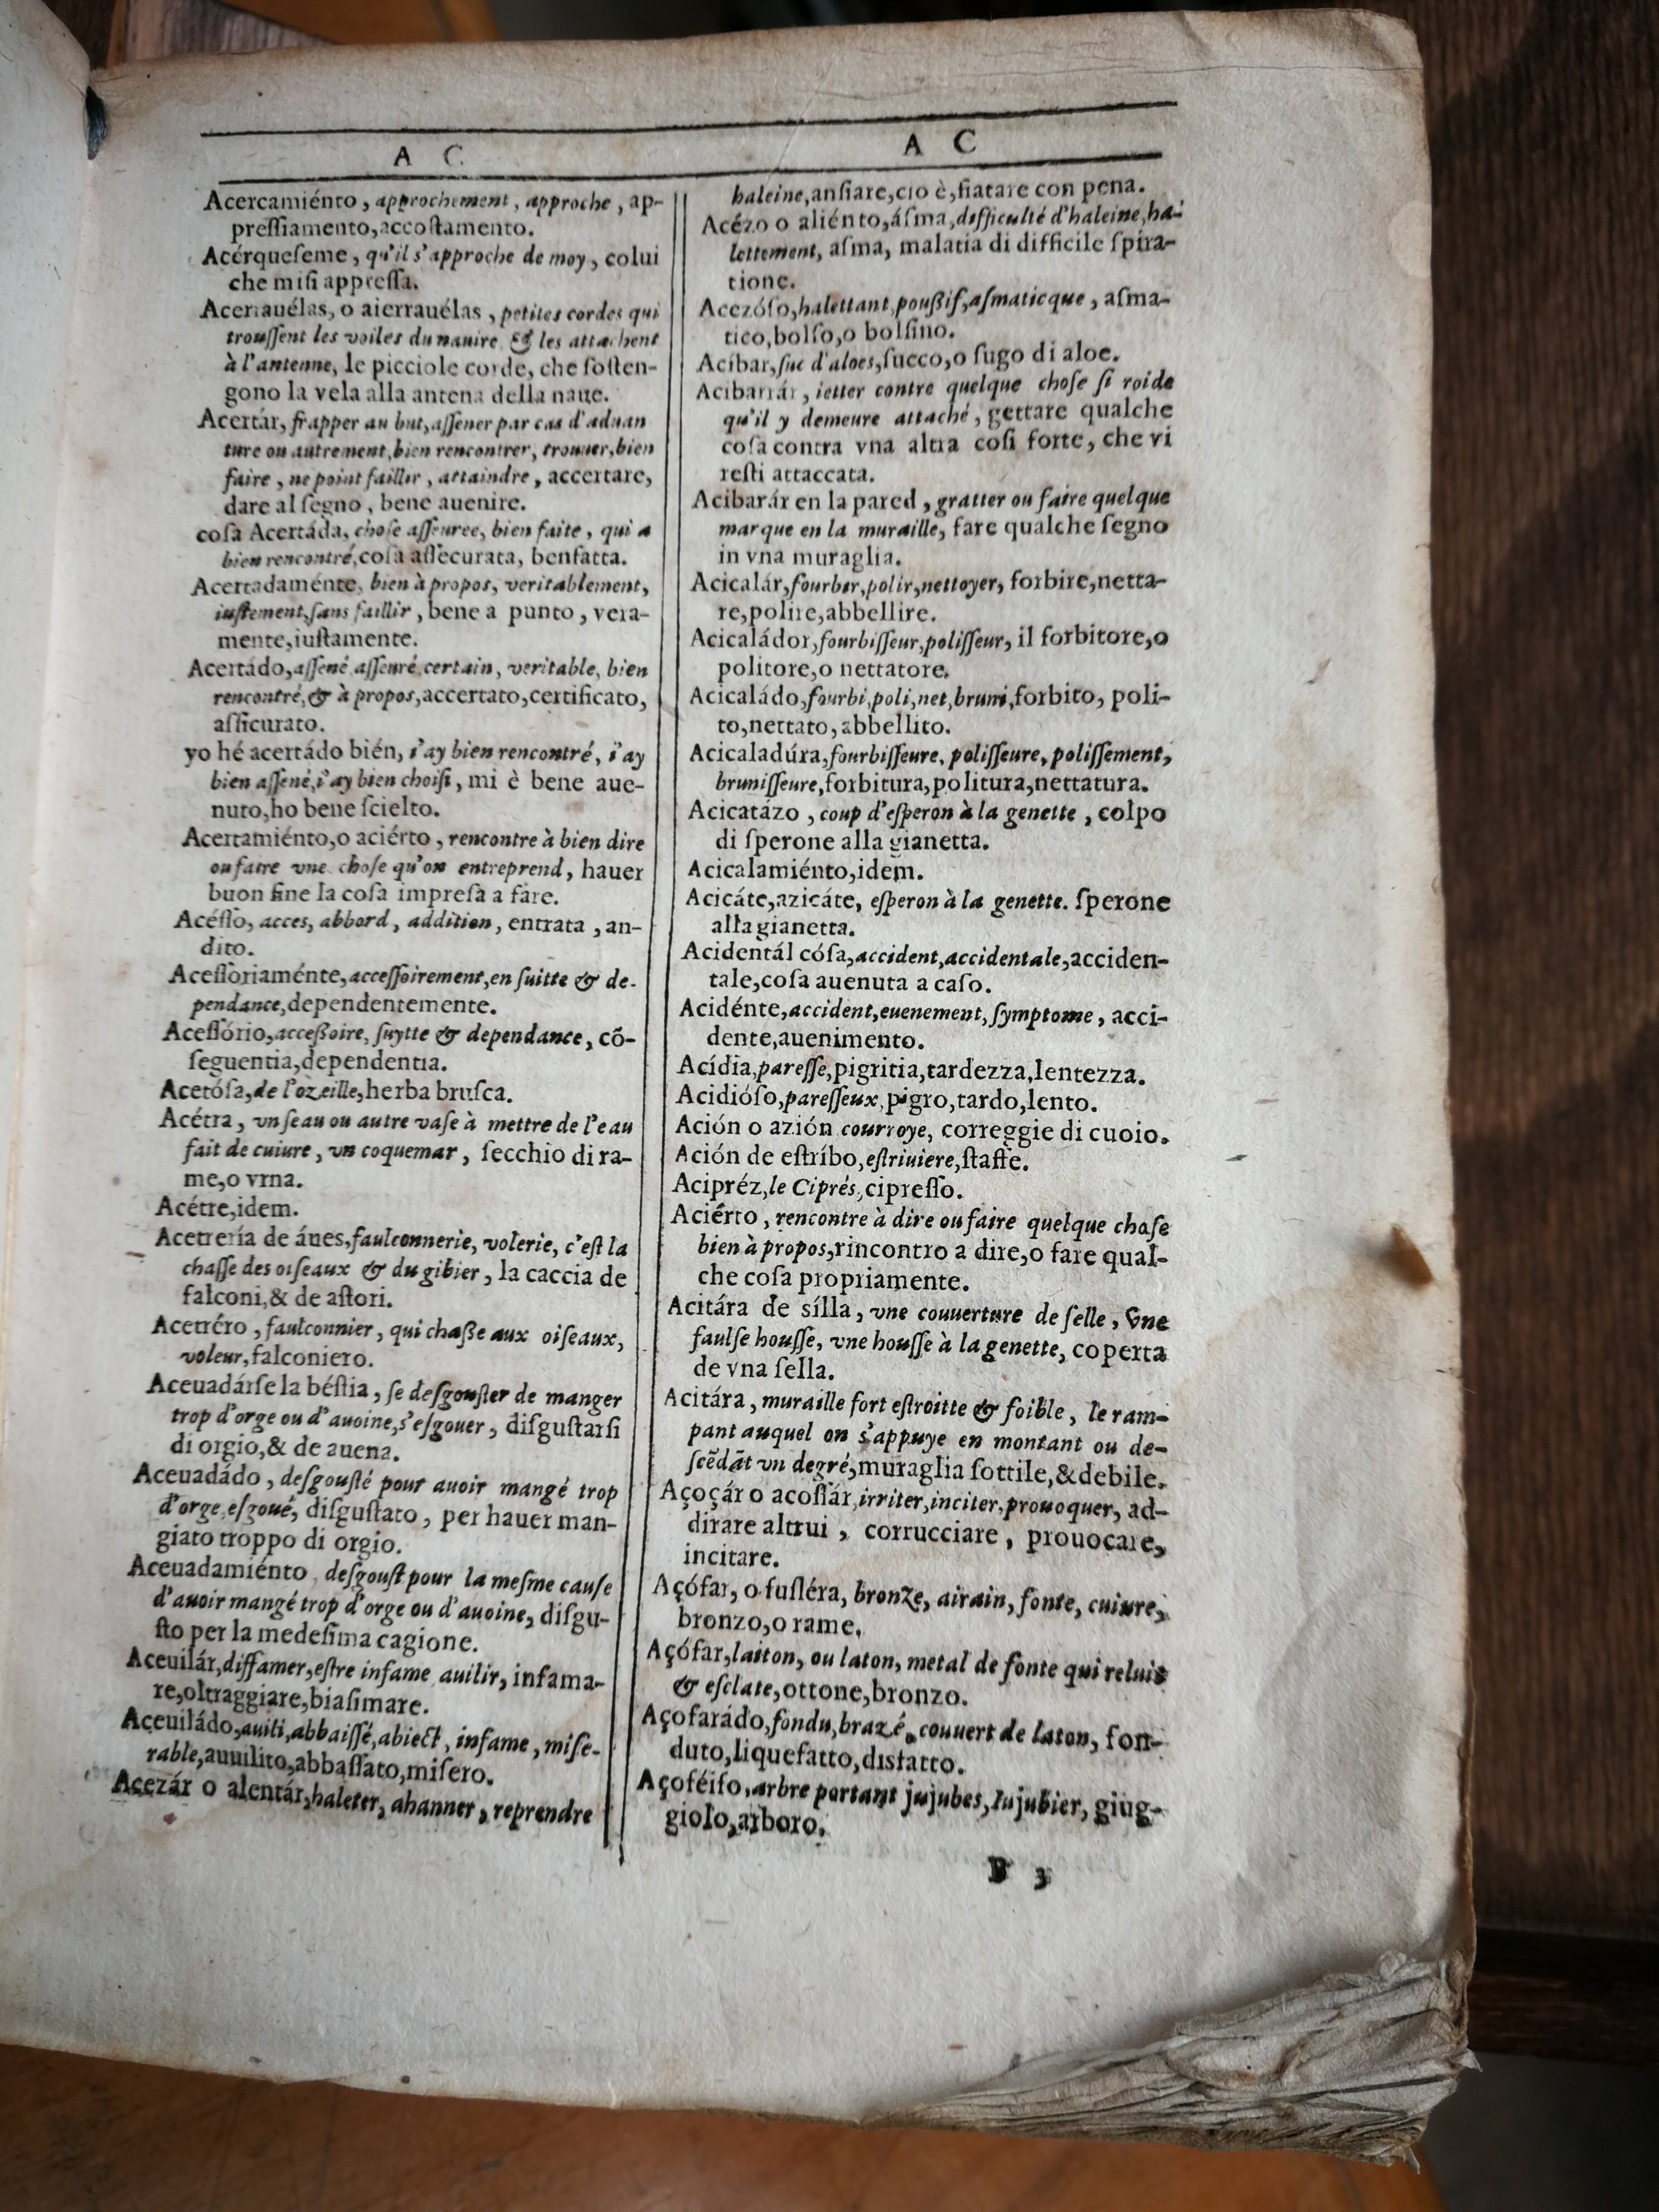 A C
Acercamiénto, approchement, approche, ap-
preſſiamento,accoſtamento.
Acérqueſeme, qu'il s'approche de moy, colui
che miſi appreſſa.
Acerrauélas, o aierrauélas, petites cordes qui
trouſſent les voiles du nauire & les attachent
à l'antenne, le picciole corde, che ſoſten-
gono la vela alla antena della naue.
Acertár, frapper au but,aſſener par cas d'aduan
ture ou autrement,bien rencontrer, trouuer,bien
faire, ne point faillir, attaindre, accertare,
dare al ſegno, bene auenire.
coſa Acertáda, choſe aſſeuree, bien faite, qui a
bien rencontré,coſa aſſecurata, benfatta.
Acertadaménte, bien à propos, veritablement,
iuſtement,ſans faillir, bene a punto, vera-
mente,iuſtamente.
Acertádo,aſſené,aſſeuré,certain, veritable, bien
rencontré,& à propos,accertato,certificato,
aſſicurato.
yo hé acertádo bién, i'ay bien rencontré, i'ay
bien aſſené,i'ay bien choiſi, mi è bene aue-
nuto,ho bene ſcielto.
Acertamiénto,o aciérto, rencontre à bien dire
ou faire vne choſe qu'on entreprend, hauer
buon fine la coſa impreſa a fare.
Acéſſo, acces, abbord, addition, entrata, an-
dito.
Aceſſoriaménte,acceſſoirement,en ſuitte & de-
pendance,dependentemente.
Aceſſório,acceßoire, ſuytte & dependance, cō-
ſeguentia,dependentia.
Acetóſa,de l'ozeille,herba bruſca.
Acétra, vn ſeau ou autre vaſe à mettre de l'eau
fait de cuiure, vn coquemar, ſecchio di ra-
me,o vrna.
Acétre,idem.
Acetrería de áues,faulconnerie, volerie, c'eſt la
chaſſe des oiſeaux & du gibier, la caccia de
falconi,& de aſtori.
Acetréro, faulconnier, qui chaße aux oiſeaux,
voleur,falconiero.
Aceuadárſe la béſtia, ſe deſgouſter de manger
trop d'orge ou d'auoine,s'eſgouer, diſguſtarſi
di orgio,& de auena.
Aceuadádo, deſgouſté pour auoir mangé trop
d'orge,eſgoué, diſguſtato, per hauer man-
giato troppo di orgio.
Aceuadamiénto, deſgouſt pour la meſme cauſe
d'auoir mangé trop d'orge ou d'auoine, diſgu-
ſto per la medeſima cagione.
Aceuilár,diffamer,eſtre infame,auilir, infama-
re,oltraggiare,biaſimare.
Aceuiládo,auili,abbaiſſé,abiect, infame, miſe-
rable,auuilito,abbaſſato,miſero.
Acezár o alentár,haleter, ahanner, reprendre
A C
haleine,anſiare,cio è,fiatare con pena.
Acézo o aliénto,áſma,difficulté d'haleine,ha-
lettement, aſma, malatia di difficile ſpira-
tione.
Acezóſo,halettant,poußif,aſmaticque, aſma-
tico,bolſo,o bolſino.
Acíbar,ſuc d'aloes,ſucco,o ſugo di aloe.
Acibarrár, ietter contre quelque choſe ſi roide
qu'il y demeure attaché, gettare qualche
coſa contra vna altra coſi forte, che vi
reſti attaccata.
Acibarár en la pared, gratter ou faire quelque
marque en la muraille, fare qualche ſegno
in vna muraglia.
Acicalár,fourbir,polir,nettoyer, forbire,netta-
re,polire,abbellire.
Acicaládor,fourbiſſeur,poliſſeur, il forbitore,o
politore,o nettatore.
Acicaládo,fourbi,poli,net,bruni,forbito, poli-
to,nettato,abbellito.
Acicaladúra,fourbiſſeure, poliſſeure, poliſſement,
bruniſſeure,forbitura,politura,nettatura.
Acicatázo, coup d'eſperon à la genette, colpo
di ſperone alla gianetta.
Acicalamiénto,idem.
Acicáte,azicáte, eſperon à la genette. ſperone
alla gianetta.
Acidentál cóſa,accident,accidentale,acciden-
tale,coſa auenuta a caſo.
Acidénte,accident,euenement,ſymptome, acci-
dente,auenimento.
Acídia,pareſſe,pigritia,tardezza,lentezza.
Acidióſo,pareſſeux,pigro,tardo,lento.
Ación o azión courroye, correggie di cuoio.
Ación de eſtríbo,eſtriuiere,ſtaffe.
Acipréz,le Ciprés,cipreſſo.
Aciérto, rencontre à dire ou faire quelque choſe
bien à propos,rincontro a dire,o fare qual-
che coſa propriamente.
Acitára de sílla, vne couuerture de ſelle, vne
faulſe houſſe, vne houſſe à la genette, coperta
de vna ſella.
Acitára, muraille fort eſtroitte & foible, le ram-
pant auquel on s'appuye en montant ou de-
ſcēdāt vn degré,muraglia ſottile,& debile.
Açoçár o acoſſár,irriter,inciter,prouoquer, ad-
dirare altrui, corrucciare, prouocare,
incitare.
Açófar, o fuſléra, bronze, airain, fonte, cuiure,
bronzo,o rame.
Açófar,laiton, ou laton, metal de fonte qui reluit
& eſclate,ottone,bronzo.
Açofarádo,fondu,brazé,couuert de laton, fon-
duto,liquefatto,disfatto.
Açoféifo,arbre portant jujubes,Iujubier, giug-
giolo,arboro.
B 3